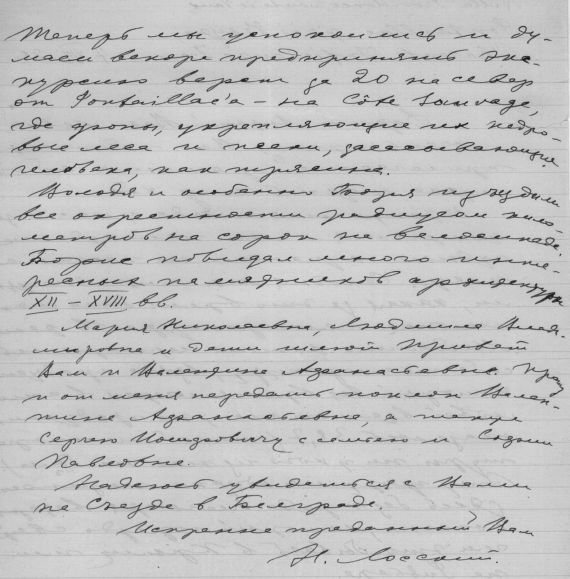 Теперь мы успокоились и ду-
маем вскоре предпринять экс-
курсию верст за 20 на север
от Pontaillac'а – на Côte Sauvage,
где дюны, укрепляющие их
леса и пески, засасывающие
человека, как трясина.
Володя и особенно Боря изъездили
все окрестности радиусом кило-
метров на сорок на велосипеде.
Борис повидал много инте-
ресных памятников архитектуры
XII – XVIII вв.
Мария Николаевна, Людмила Влади-
мировна и дети шлют привет
Вам и Валентине Афанасьевне. Прошу
и от меня передать поклон Вален-
тине Афанасьевне, а также
Сергею Иосифовичу с семьею и
Павловне.
Надеюсь увидеться с Вами
на Съезде в Белграде.
Искренне преданный Вам
Н. Лосский.